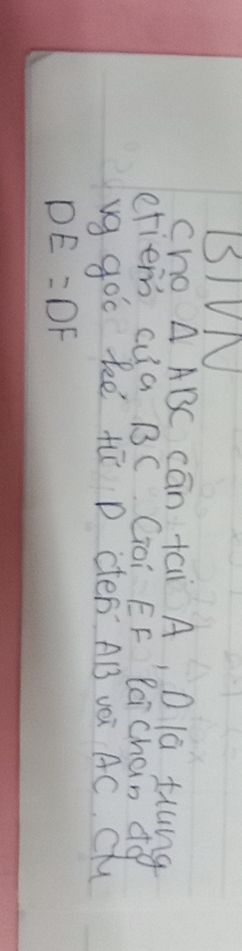 BTVN
Cho Δ ABC cân tại A, D là trung
điểm của BC. Gọi E F, là chân đg
vg góc kẻ từ D đến AB và AC. CM
DE = DF